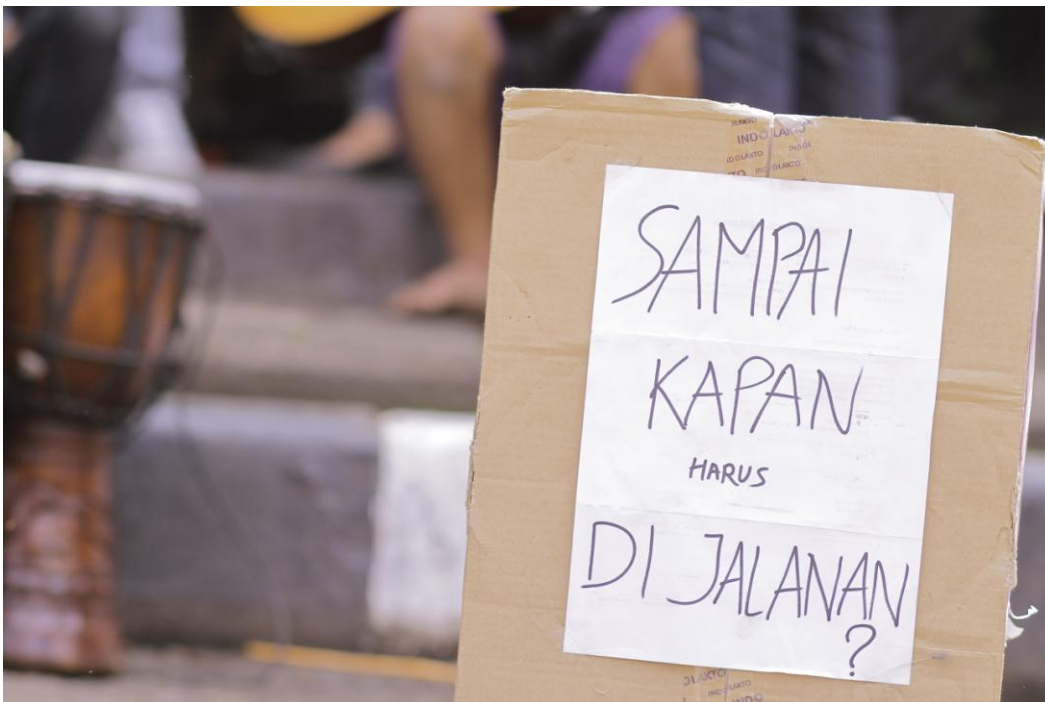 INDOLAKTO
SAMPAI
KAPAN
HARUS
DI JALANAN
?